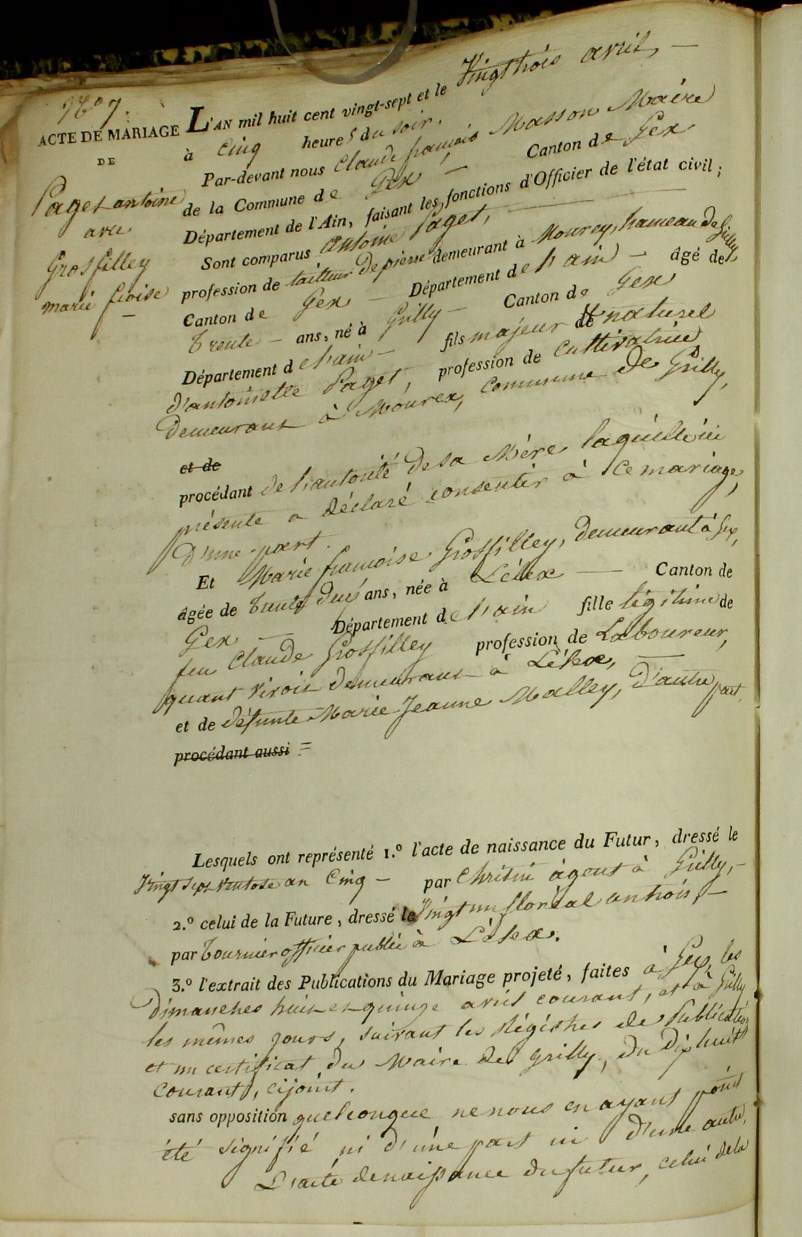 N.o 7.
ACTE DE MARIAGE
DE
Paget antoine
avec
Grosfilley
marie fçoise
L'AN mil huit cent vingt-sept et le Vingttrois avril, —
à cinq heures du soir.
Par-devant nous Claude françois Masson Maire
de la Commune de Gex — Canton de Gex
Département de l'Ain, faisant les fonctions d'Officier de l'état civil;
Sont comparus antoine Paget, —
profession de tailleur de pierre demeurant à Mourex, hameau de Grilly
Canton de Gex — Département de l'ain — âgé de
trente — ans, né à Grilly — Canton de Gex
Département de l'ain — fils majeur et naturel
d'antoinette Paget, profession de Cultivatrice
demeurant à Mourex, Commune de Grilly,
et de
procédant de l'autorité de sa Mère laquelle ici
présente a déclaré consentir à ce mariage,
d'une part.
Et Marie françoise Grosfilley, demeurant à Gex,
âgée de trente deux ans, née à Lélex — Canton de
Gex — Département de l'ain fille légitime de
feu Claude Grosfilley profession de Laboureur,
quant vivoit demeurant à Lélex, —
et de défunte Marie Jeanne Malley, d'autre part
procédant aussi =
Lesquels ont représenté 1.o l'acte de naissance du Futur, dressé le
Vingt sept Ventose an Cinq — par agent à Grilly, —
2.o celui de la Future, dressé le Vingt un floréal an trois, —
par Tournier officier public à Lélex.
3.o l'extrait des Publications du Mariage projeté, faites à Gex, les
Dimanches huit et quinze avril courant, et à Grilly
les mêmes jours, suivant les Régistres de Publication
et un certificat du Maire de Grilly, du Dixhuit
Courant, cijoint.
sans opposition quelconque ne nous en ayant point
été signifié ni d'une part ni d'une autre,
L'acte de naissance du futur, celui de la